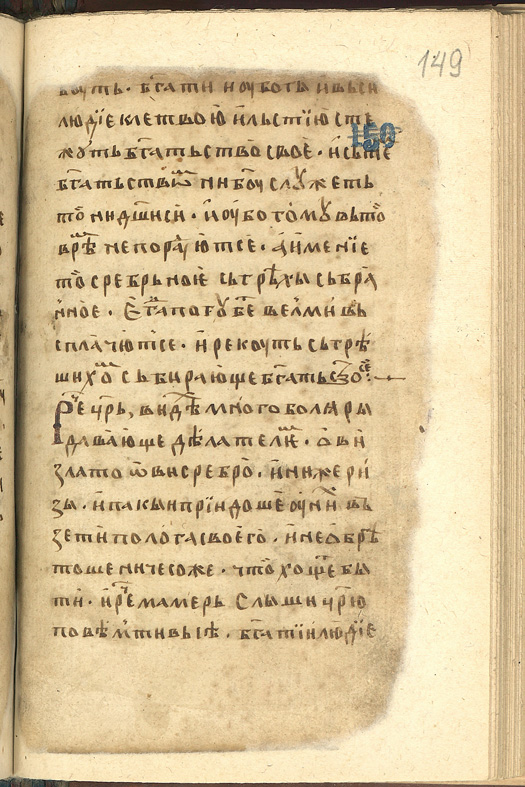 149
150
боуть · бг҃атїи и оубоѕїи
людїе клетвою и льстїю сте
жуть бг҃атьство свое · и сьтѣ
бг҃атьствѡⷨ ни бг҃оу служеть
то ни дш҃и си · и оубогому вь тоⷤ
врⷨѣ не порⷣаують се · а имѣнїе
тоⷤ сребрьное сь грѣхы сьбра
нное · Егⷣа погубе велми вь
сплачють се · и рекоуть сь грѣ
ши хѡⷨ сьбирающе бг҃атьство
Рⷱе цр҃ь, видѣⷯ много боляры
давающе дѣлателⷨѣ · ови
злато ѡви сребро · и ини же ри
зы · и пакы прїидоше оу ниⷯ вь
зети полога своего · и не обрⷮѣ
тоше ничесоже · что хощеⷮ бы
ти · и рⷱе мамерь Слыши цр҃ю
повѣмⷮи вь се · бг҃атїи людїе